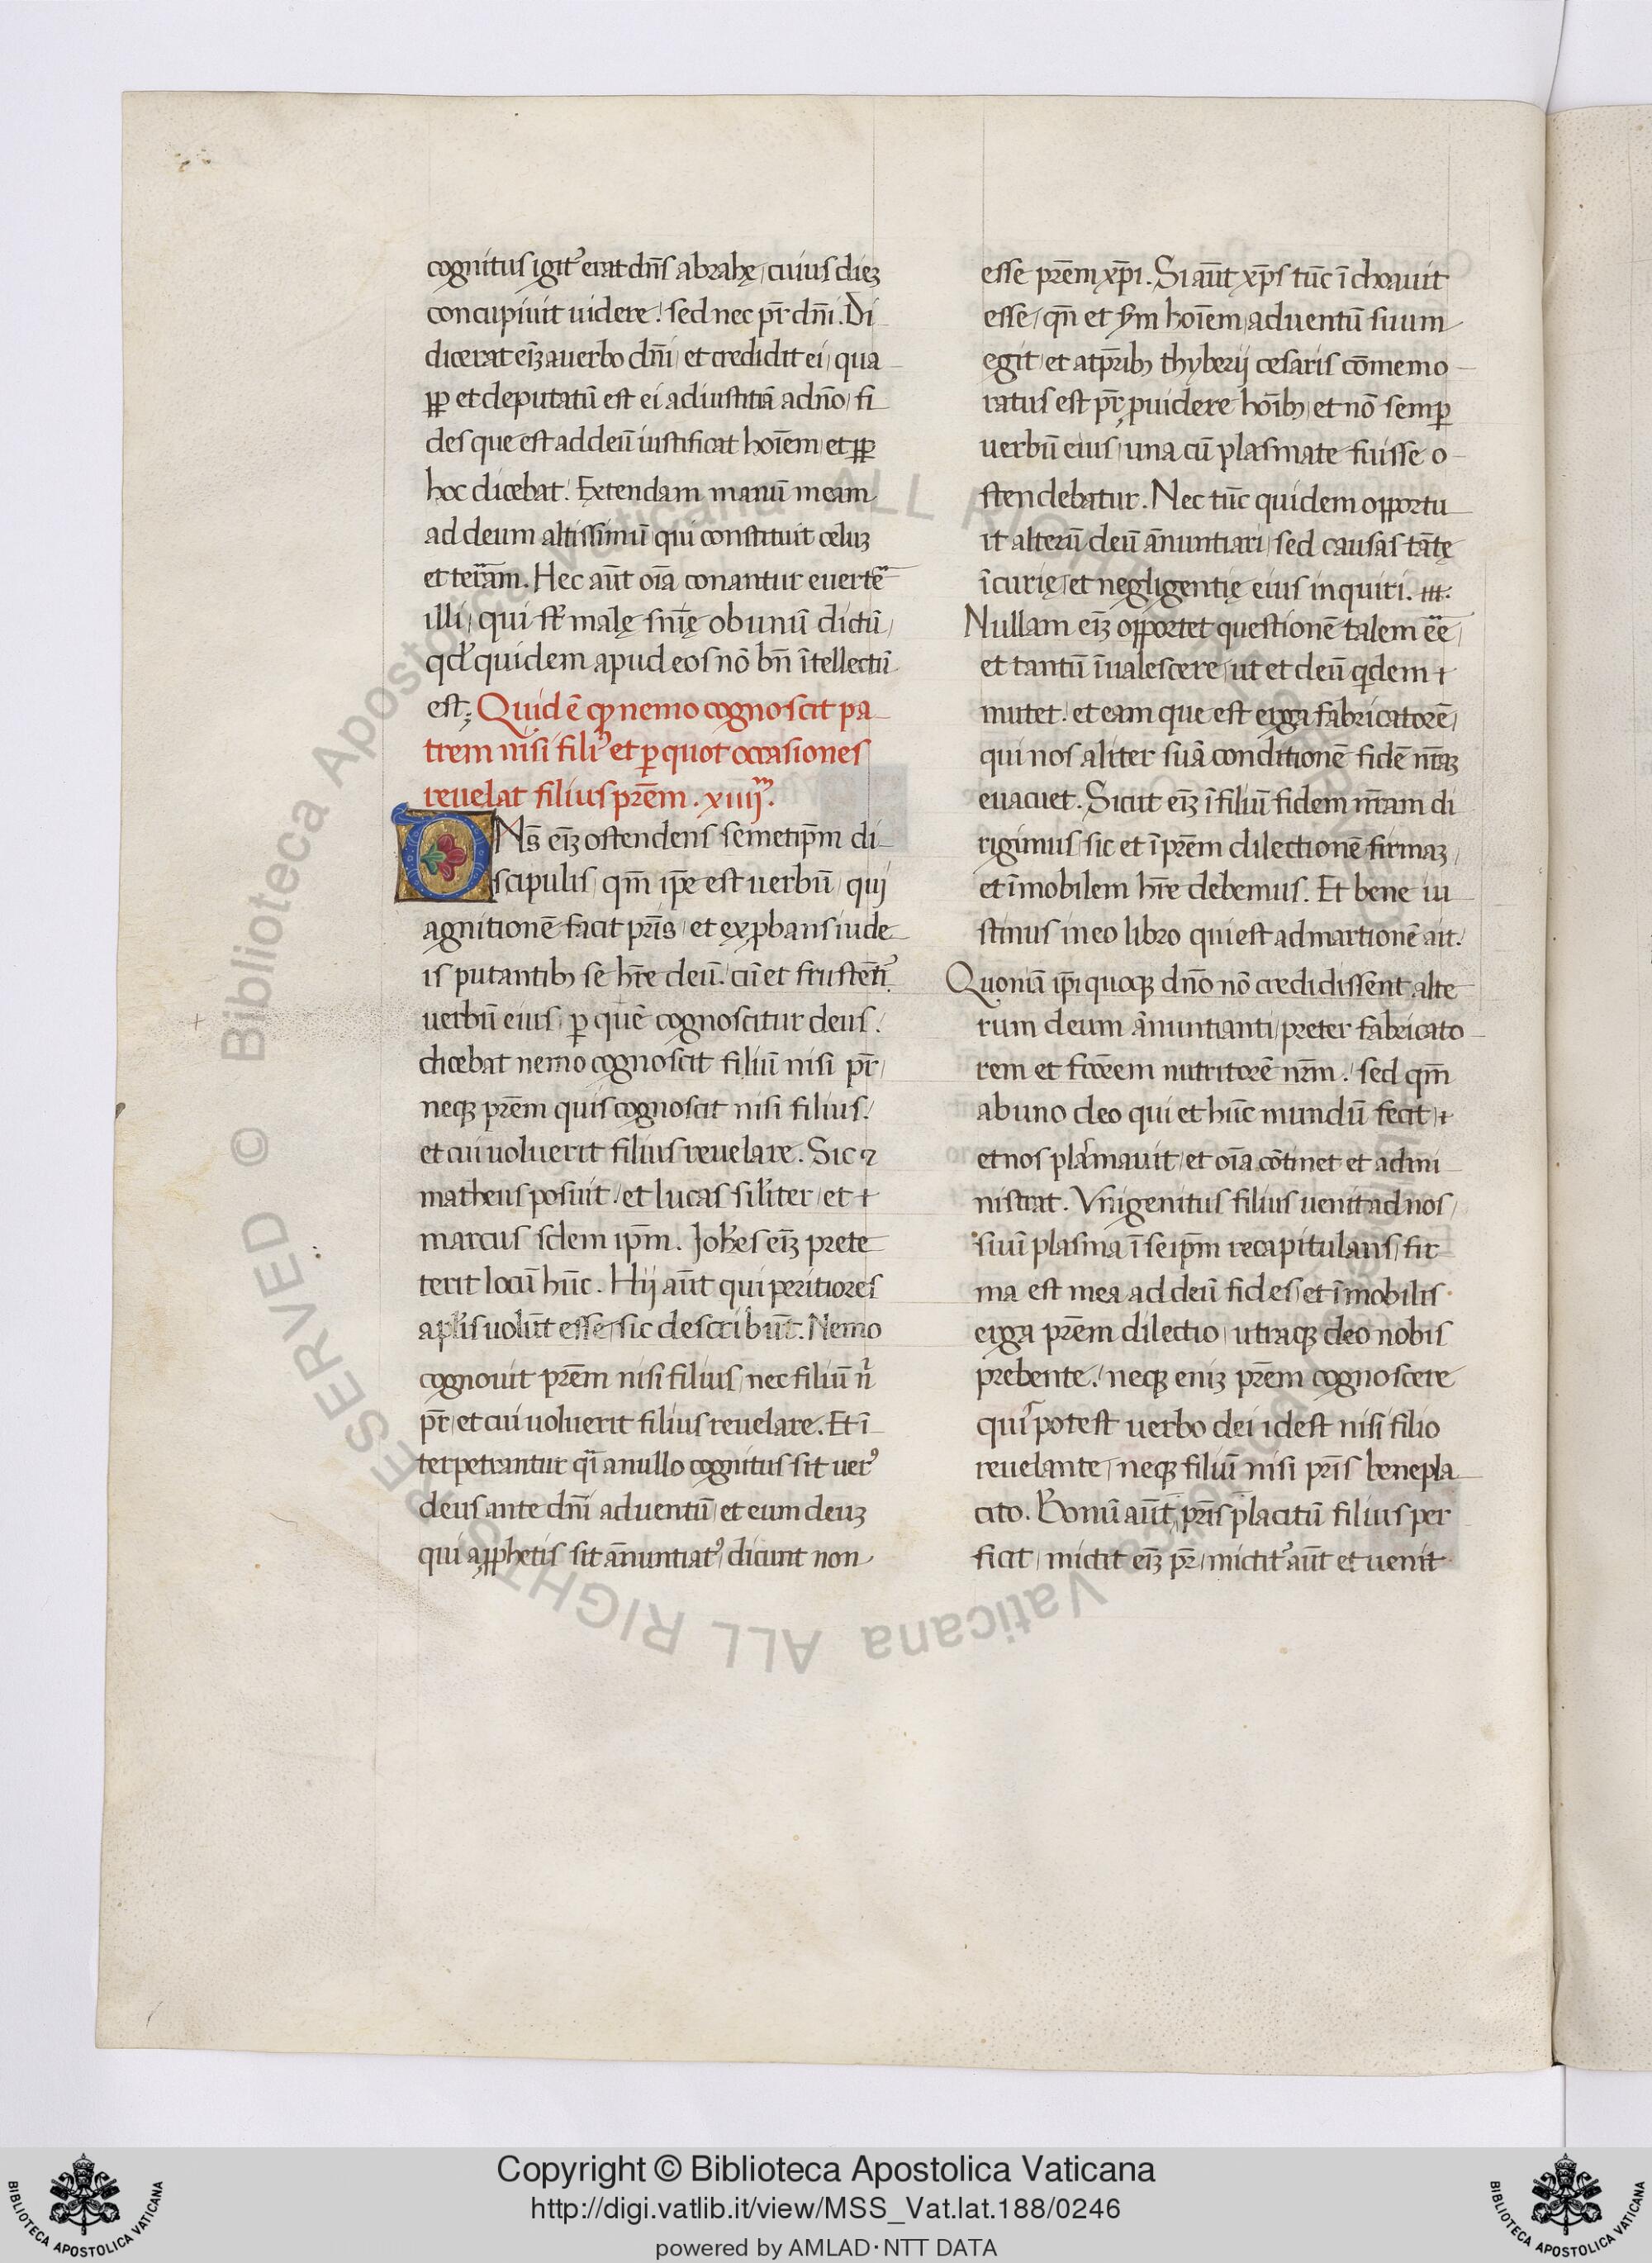 cognitus igit᷒ erat dn̄s abrahę, cuius dieꝫ
concupiuit uidere! sed nec pr̄ dn̄i. Di
dicerat eīꝫ a uerbo dn̄i, et credidit ei, qua
ꝓp et deputatū est ei ad iustitiā a dn̄o, fi
des que est ad deū iustificat hoīem, et ꝓp
hoc dicebat! Extendam manū meam
ad deum altissimū qui constituit celuꝫ
et terram. Hec aūt oīa conantur euerte᷒
illi, qui st̄ malę sn̄ię ob unū dictū,
qd̓ quidem apud eos nō bn̄ ītellectū
est; Quid ē ꝙ nemo cognoscit pa
trem nisi fili᷒ et ꝑ quot occasiones
reuelat filius pr̄em. xiiij.
DNs̄ eīꝫ ostendens semetip̄m di
scipulis, qm̄ ip̄e est uerbū, qui
agnitionē facit pr̄is, et exꝓbans iude
is putantibꝫ se hr̄e deū. cū et
uerbū eius, ꝑ quē cognoscitur deus!
dicebat nemo cognoscit filiū nisi pr̄,
neqꝫ pr̄em quis cognoscit nisi filius!
et cui uoluerit filius reuelare. Sic ⁊
matheus posuit, et lucas silīter, et ⁊
marcus idem ip̄m. Joh̄es eīꝫ prete
terit locū hūc. Hij aūt qui peritiores
apl̄is uolūt esse, sic describūt. Nemo
cognouit pr̄em nisi filius, nec filiū nͥ
pr̄, et cui uoluerit filius reuelare. Et ī
terpetrantur qͣi a nullo cognitus sit uer᷒
deus ante dn̄i aduentū, et eum deuꝫ
qui a ꝓphetis sit ānuntiat᷒, dicunt non
esse pr̄em xp̄i. Si aūt xp̄s tūc īchoauit
esse, qn̄ et s̄m hoīem, aduentū suum
egit, et a tp̄ribꝫ thyberij cesaris cōmemo
ratus est pr̄, ꝓuidere hoībꝫ, et nō semꝑ
uerbū eius, una cū plasmate fuisse o
stendebatur. Nec tūc quidem opportu
it alterū deū ānuntiari, sed causas tātę
īcurię, et negligentię eius inquiri.
Nullam eīꝫ opportet questionē talem ee᷒,
et tantū īualescere, ut et deū qͥdem ⁊
mutet! et eam que est erga fabricatorē,
qui nos aliter suā conditionē fidē nr̄aꝫ
euacuet. Sicut eīꝫ ī filiū fidem nr̄am di
rigimus, sic et ī pr̄em dilectionē firmaꝫ,
et īmobilem hr̄e debemus. Et bene iu
stinus in eo libro qui est ad martionē ait!
Quoniā ip̄i quoqꝫ dn̄o nō credidissent, alte
rum deum ānuntianti, preter fabricato
rem et fc̄orem nutritorē nr̄m! sed qm̄
ab uno deo qui et hūc mundū fecit, ⁊
et nos plasmauit, et oīa cōtinet et admi
nistrat. Vnigenitus filius uenit ad nos,
suū plasma ī seip̄m recapitulans, fir
ma est mea ad deū fides, et īmobilis
erga pr̄em dilectio, utraqꝫ deo nobis
prebente! neqꝫ eniꝫ pr̄em cognoscere
quiˢ potest uerbo dei idest nisi filio
reuelante, neqꝫ filiū nisi pr̄is benepla
cito. Bonū aūt pr̄is placitū filius per
ficit, mictit eīꝫ pr̄, mictit᷒ aūt et uenit
© Biblioteca Apostolica Vaticana ALL RIGHTS RESERVED
Copyright © Biblioteca Apostolica Vaticana
http://digi.vatlib.it/view/MSS_Vat.lat.188/0246
powered by AMLAD·NTT DATA
BIBLIOTECA APOSTOLICA VATICANA
BIBLIOTECA APOSTOLICA VATICANA